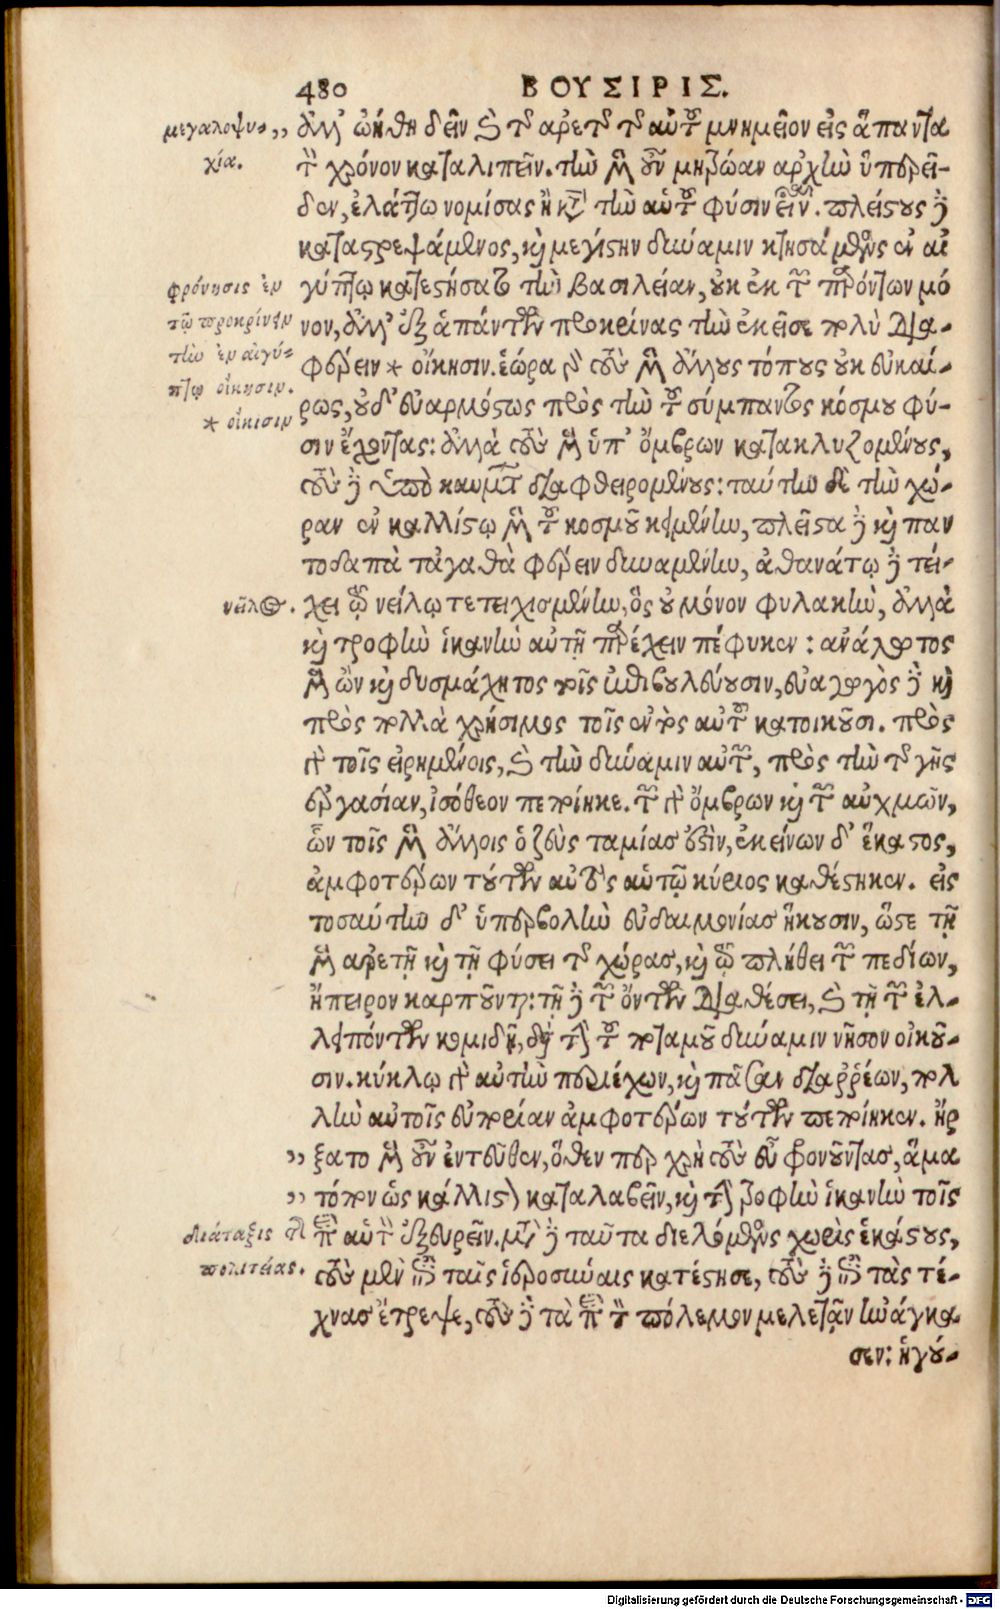 480 ΒΟΥΣΙΡΙΣ.
μεγαλοψυ- ,, ἀλλ' ᾠήθη δεῖν καὶ τῆς ἀρετῆς τῆς αὑτοῦ μνημεῖον εἰς ἅπαντα
χία. τὸν χρόνον καταλιπεῖν. τὴν μὲν οὖν μητρῴαν ἀρχὴν ὑπερεῖ-
δεν, ἐλάττω νομίσας ἢ κατὰ τὴν αὑτοῦ φύσιν εἶναι. πλείστους δὲ
καταστρεψάμενος, καὶ μεγίστην δύναμιν κτησάμενος ἐν αἰ
φρόνησις ἐν γύπτῳ κατεστήσατο τὴν βασιλείαν, οὐκ ἐκ τῶν παρόντων μό
τῷ προκρίνειν νον, ἀλλ' ἐξ ἁπάντων προκρίνας τὴν ἐκεῖσε πολὺ δια-
τὴν ἐν αἰγύ- φέρειν * οἴκησιν. ἑώρα γὰρ τοὺς μὲν ἄλλους τόπους οὐκ εὐκαί-
πτῳ οἴκησιν.
* οἴκισιν ρως, οὐδ' εὐαρμόστως πρὸς τὴν τοῦ σύμπαντος κόσμου φύ-
σιν ἔχοντας: ἀλλὰ τοὺς μὲν ὑπ' ὄμβρων κατακλυζομένους,
τοὺς δὲ ὑπὸ καυμάτων διαφθειρομένους: ταύτην δὲ τὴν χώ-
ραν ἐν καλλίστῳ μὲν τοῦ κοσμοῦ κειμένην, πλεῖστα δὲ καὶ παν
τοδαπὰ τἀγαθὰ φέρειν δυναμένην, ἀθανάτῳ δὲ τεί-
νεῖλος. χει τῷ νείλῳ τετειχισμένην, ὃς οὐ μόνον φυλακὴν, ἀλλὰ
καὶ τροφὴν ἱκανὴν αὐτῇ παρέχειν πέφυκεν: ἀνάλωτος
μὲν ὢν καὶ δυσμάχητος τοῖς ἐπιβουλεύουσιν, εὐαγωγὸς δὲ καὶ
πρὸς πολλὰ χρήσιμος τοῖς ἐντὸς αὐτοῦ κατοικοῦσι. πρὸς
γὰρ τοῖς εἰρημένοις, καὶ τὴν δύναμιν αὐτῶν, πρὸς τὴν τῆς γῆς
ἐργασίαν, ἰσόθεον πεποίηκε. τῶν γὰρ ὄμβρων καὶ τῶν αὐχμῶν,
ὧν τοῖς μὲν ἄλλοις ὁ ζεὺς ταμίας ἐστὶν, ἐκείνων δ' ἕκαστος,
ἀμφοτέρων τούτων αὐτὸς αὑτῷ κύριος καθέστηκεν. εἰς
τοσαύτην δ' ὑπερβολὴν εὐδαιμονίας ἥκουσιν, ὥστε τῇ
μὲν ἀρετῇ καὶ τῇ φύσει τῆς χώρας, καὶ τῷ πλήθει τῶν πεδίων,
ἤπειρον καρποῦνται: τῇ δὲ τῶν ὄντων διαθέσει, καὶ τῇ τῶν ἐλ-
λειπόντων κομιδῇ, διὰ τὴν τοῦ ποταμοῦ δύναμιν νῆσον οἰκοῦ-
σιν. κύκλῳ γὰρ αὐτὴν περιέχων, καὶ πᾶσαν διαῤῥέων, πολ
λὴν αὐτοῖς εὐπορίαν ἀμφοτέρων τούτων πεποίηκεν. ἤρ
,, ξατο μὲν οὖν ἐντεῦθεν, ὅθεν περ χρὴ τοὺς εὖ φρονοῦντας, ἅμα
,, τόπον ὡς κάλλιστον καταλαβεῖν, καὶ τροφὴν ἱκανὴν τοῖς
διάταξις τῆς περὶ αὑτὸν ἐξευρεῖν. μετὰ δὲ ταῦτα διελόμενος χωρὶς ἑκάστους,
πολιτείας. τοὺς μὲν ἐπὶ ταῖς ἱεροσύναις κατέστησε, τοὺς δὲ ἐπὶ τὰς τέ-
χνας ἔτρεψε, τοὺς δὲ τὰ περὶ τὸν πόλεμον μελετᾷν ἠνάγκα-
σεν: ἡγού-
Digitalisierung gefördert durch die Deutsche Forschungsgemeinschaft - DFG